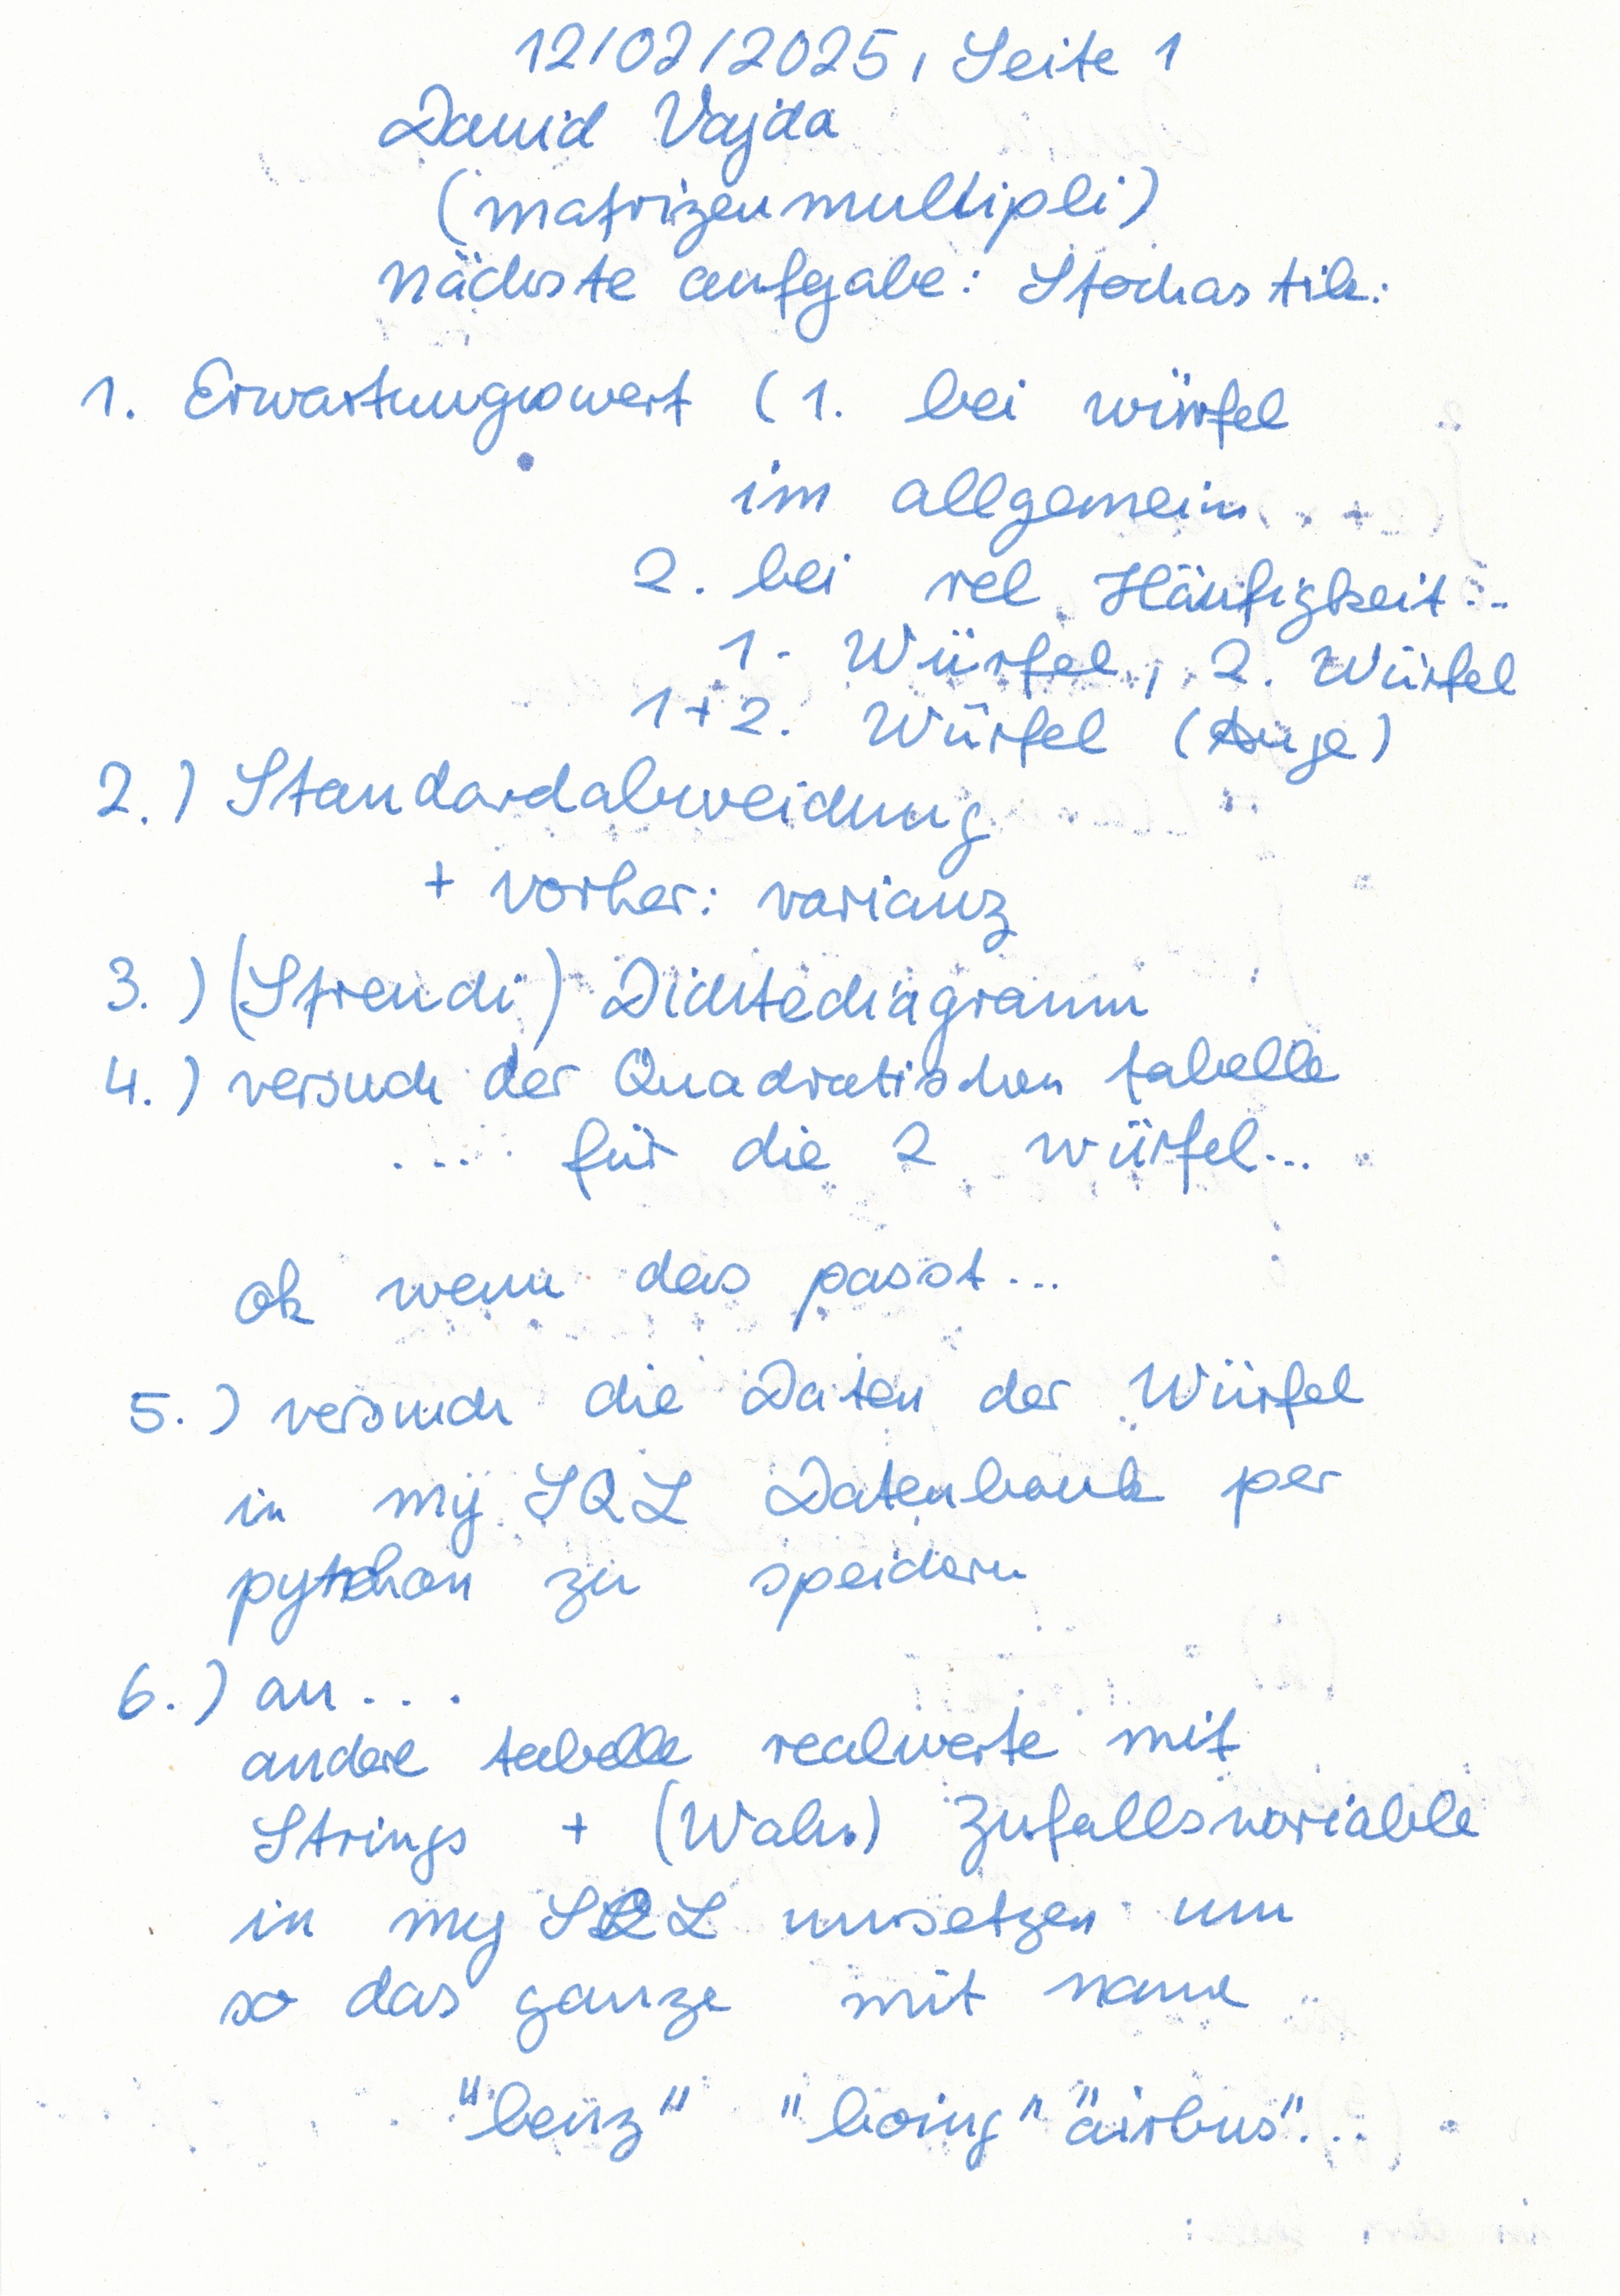 12/02/2025, Seite 1
David Vajda
(matrizenmultipli)
nächste aufgabe: Stochastik:
1. Erwartungswert (1. bei würfel
im allgemein
2. bei rel Häufigkeit...
1. Würfel, 2. Würfel
1+2. Würfel (Auge)
2.) Standardabweichung
+ vorher: varianz
3.) (Streudi) Dichtediagramm
4.) versuch der Quadratischen tabelle
.... für die 2 würfel...
ok wenn das passt...
5.) versuch die Daten der Würfel
in mySQL Datenbank per
python zu speichern
6.) an....
andere tabelle realwerte mit
Strings + (Wahr.) Zufallsvariable
in mySQL umsetzen um
so das ganze mit name
"benz" "boing" "airbus"...